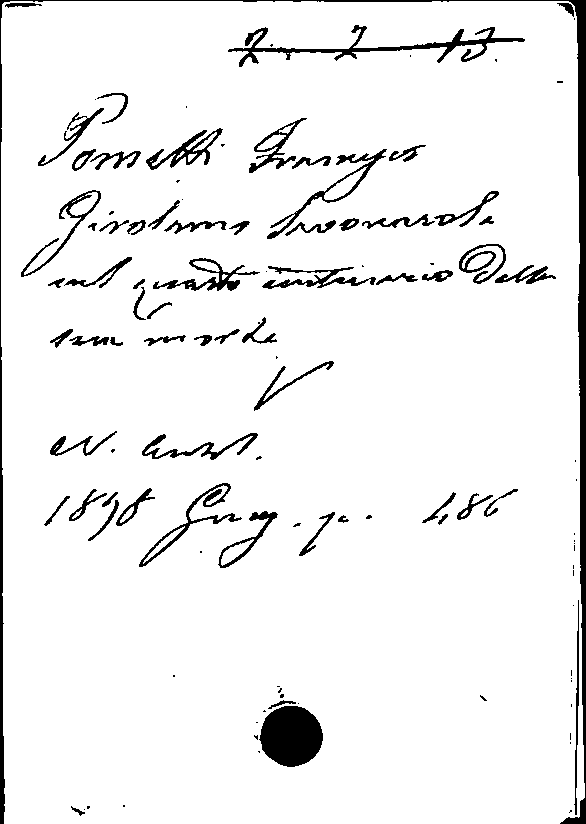 2. 2 13.
Pometti Francesco
Girolamo Savonarola
nel quarto centenario della
sua morte
V
N. Antol.
1898 Giug. p. 486